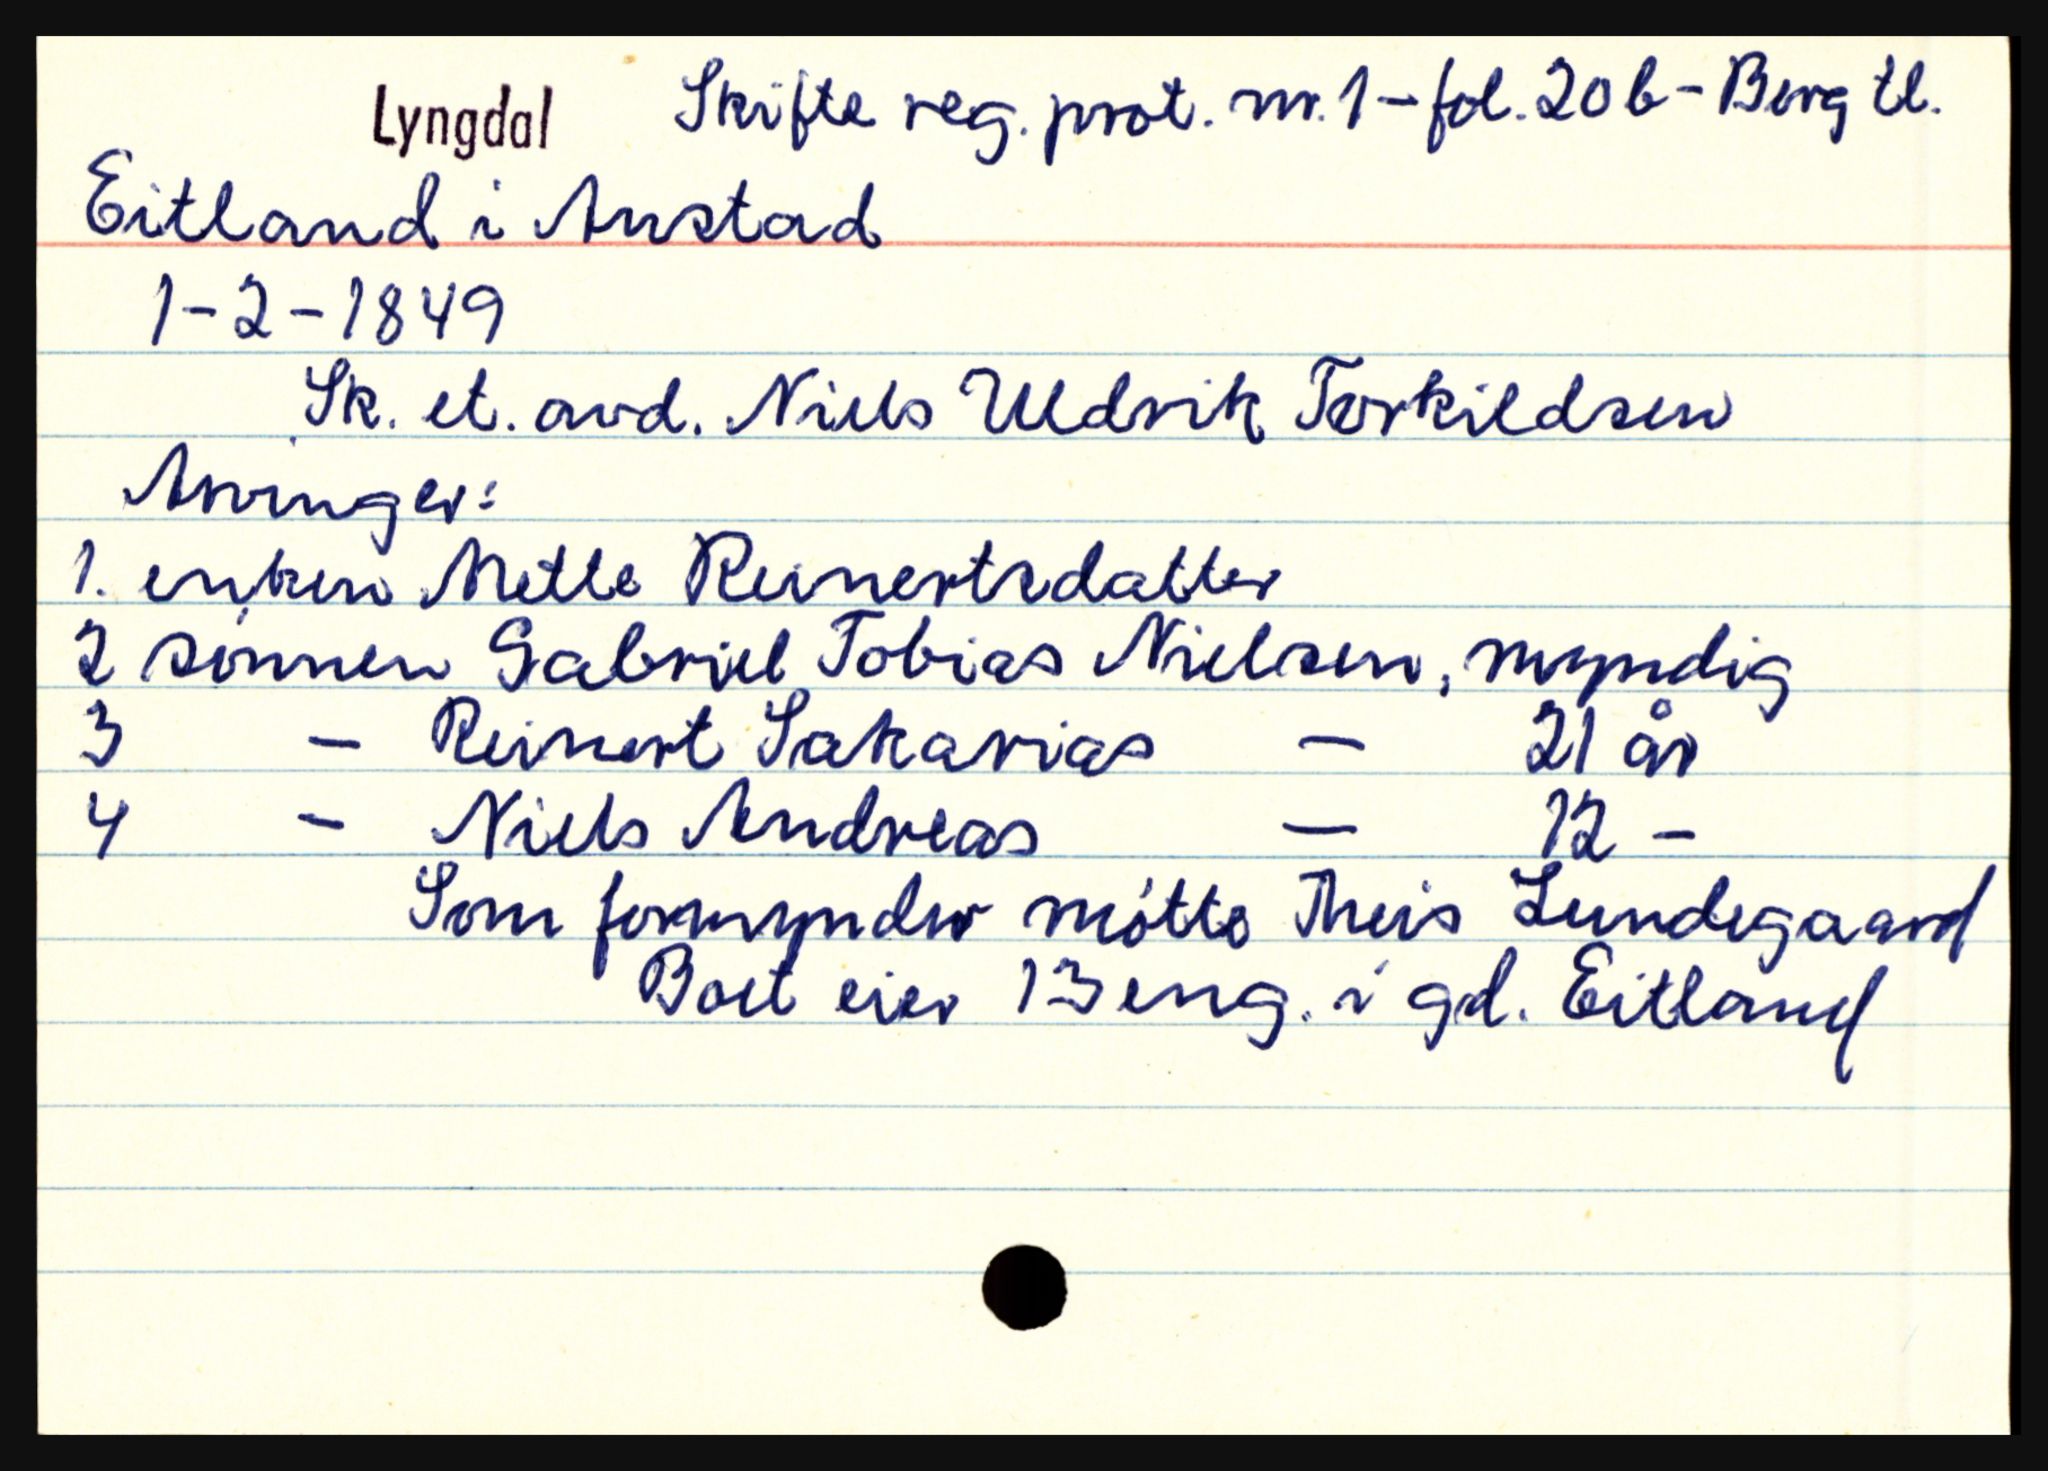 Lyngdal Skifte reg. prot. nr. 1 - fol. 20 b - Berg tl.
Eitland i Austad
1-2-1849
Sk. et. avd. Niels Uldrik Torkildsen
Arvinger:
1. enken Mette Reinertsdatter
2 sønnen Gabriel Tobias Nielsen, myndig
3 - Reinert Sakarias - 21 år
4 - Niels Andreas - 12 -
Som formynder møtte Theis Lundegaard
Boet eier 13 eng. i gd. Eitland